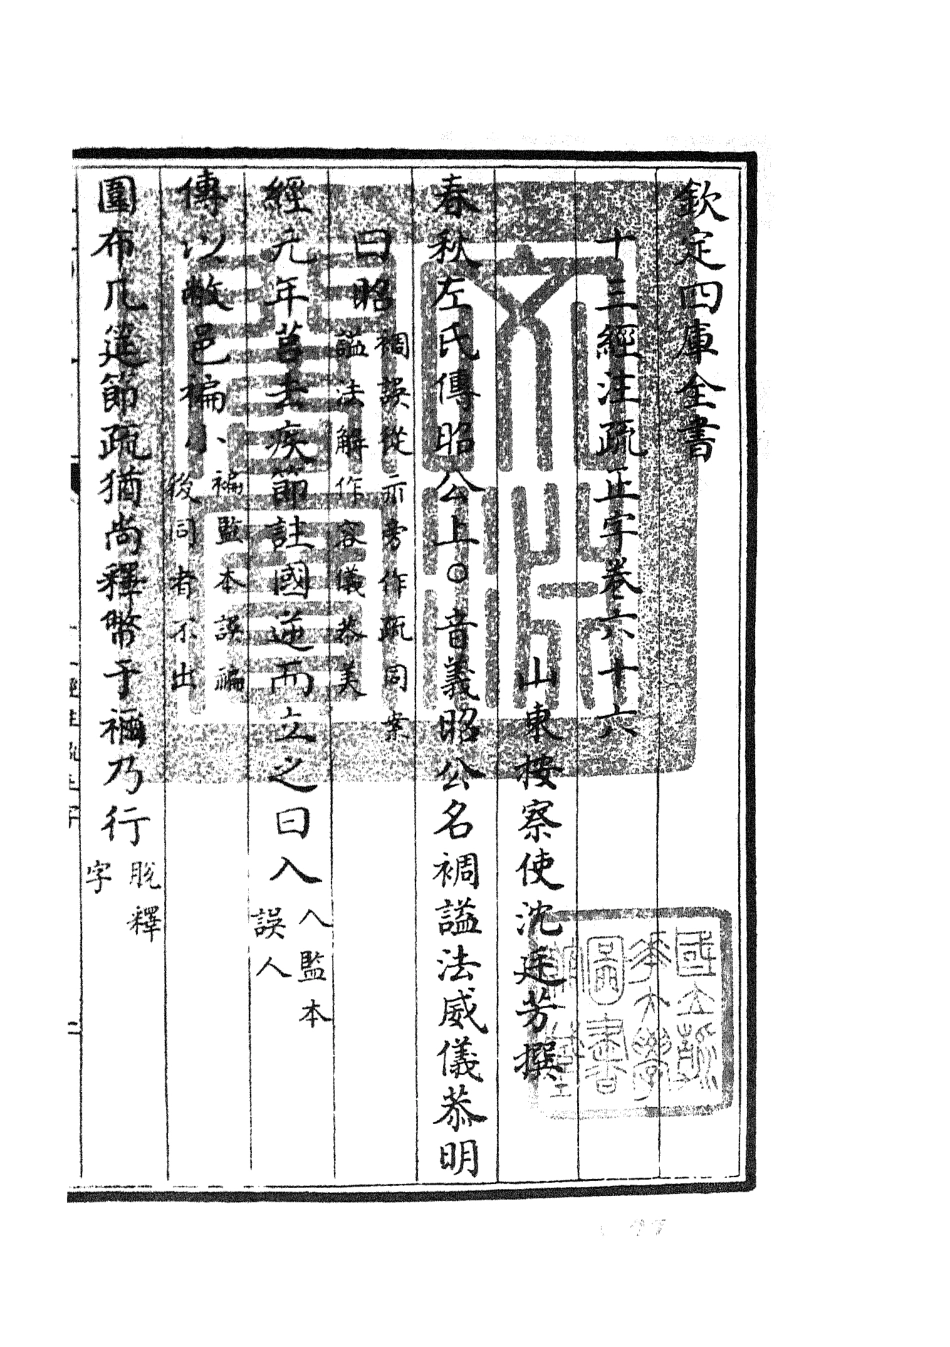 欽定四庫全書
十三經注疏正字卷六十六
山東按察使沈廷芳撰
春秋左氏傳昭公上○音義昭公名裯謚法威儀恭明
曰昭
裯誤從示旁作疏同案
謚法解作容儀恭美
經元年莒去疾節註國逆而立之曰入
入監本
誤人
傳以敝邑褊小
褊監本誤褊
後同者不出
圍布几筵節疏猶尚釋幣于禰乃行
脱釋
字